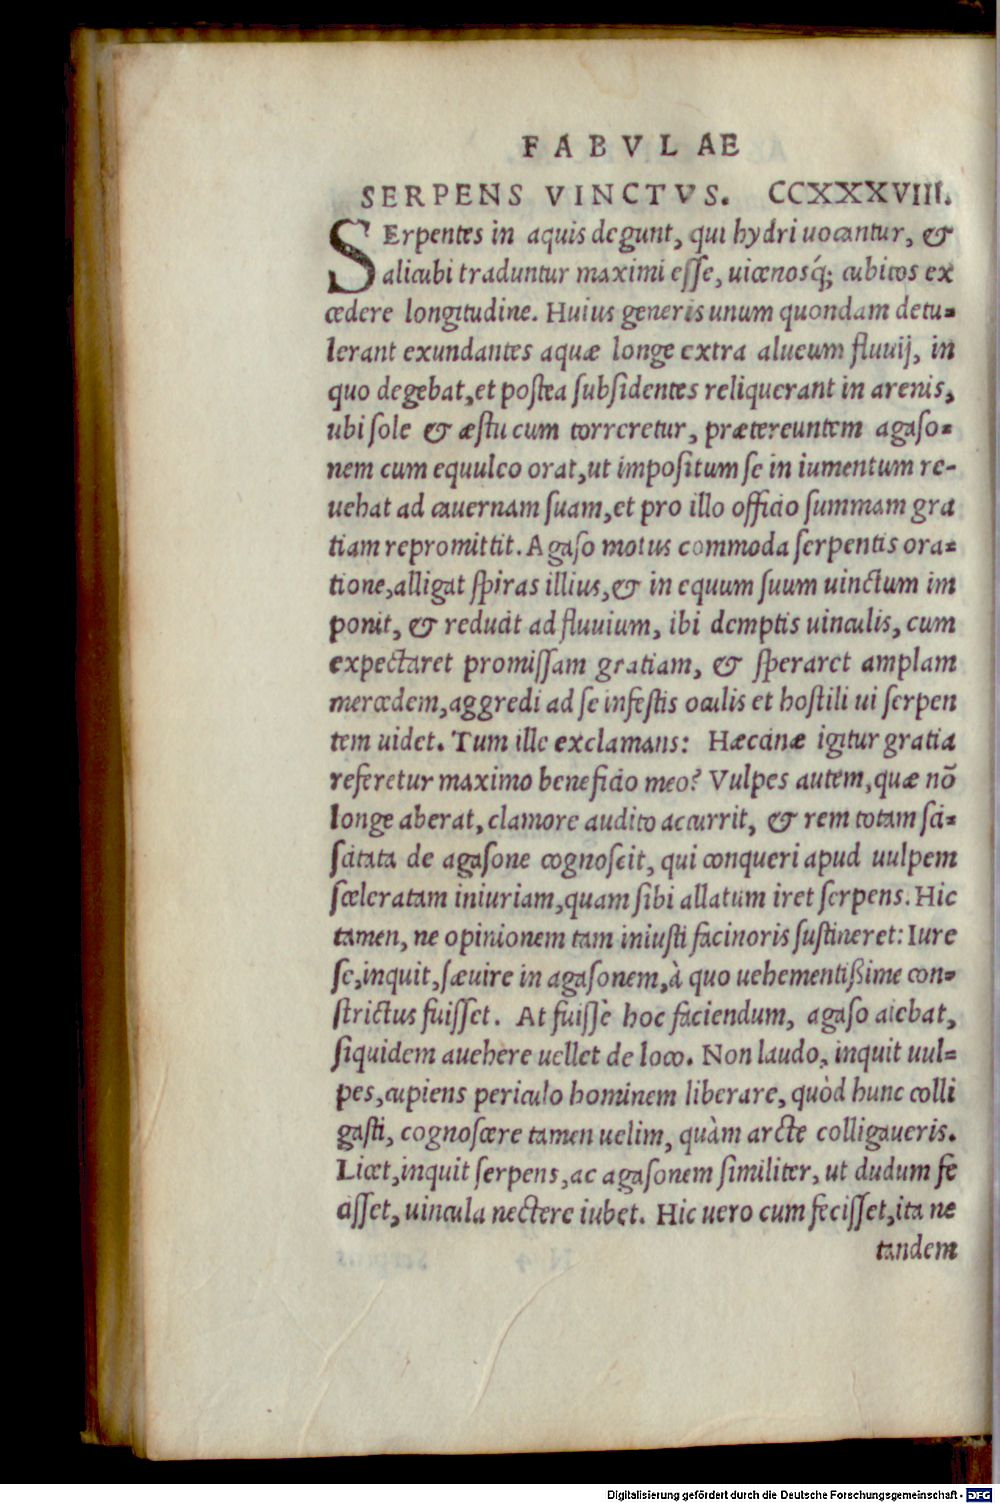 FABVLAE
SERPENS VINCTVS. CCXXXVIII.
SErpentes in aquis degunt, qui hydri uocantur, &
alicubi traduntur maximi esse, uicenosq́; cubitos ex
cedere longitudine. Huius generis unum quondam detu-
lerant exundantes aquæ longe extra alueum fluuij, in
quo degebat, et postea subsidentes reliquerant in arenis,
ubi sole & æstu cum torreretur, prætereuntem agaso-
nem cum equuleo orat, ut impositum se in iumentum re-
uehat ad cauernam suam, et pro illo officio summam gra
tiam repromittit. Agaso motus commoda serpentis ora-
tione, alligat spiras illius, & in equum suum uinctum im
ponit, & reducit ad fluuium, ibi demptis uinculis, cum
expectaret promissam gratiam, & speraret amplam
mercedem, aggredi ad se infestis oculis et hostili ui serpen
tem uidet. Tum ille exclamans: Hæccinæ igitur gratia
referetur maximo beneficio meo? Vulpes autem, quæ nō
longe aberat, clamore audito accurrit, & rem totam sci-
scitata de agasone cognoscit, qui conqueri apud uulpem
sceleratam iniuriam, quam sibi allatum iret serpens. Hic
tamen, ne opinionem tam iniusti facinoris sustineret: Iure
se, inquit, sæuire in agasonem, à quo uehementißime con-
strictus fuisset. At fuissè hoc faciendum, agaso aiebat,
siquidem auehere uellet de loco. Non laudo, inquit uul-
pes, cupiens periculo hominem liberare, quòd hunc colli
gasti, cognoscere tamen uelim, quàm arcte colligaueris.
Licet, inquit serpens, ac agasonem similiter, ut dudum fe
cisset, uincula nectere iubet. Hic uero cum fecisset, ita ne
tandem
Digitalisierung gefördert durch die Deutsche Forschungsgemeinschaft - DFG